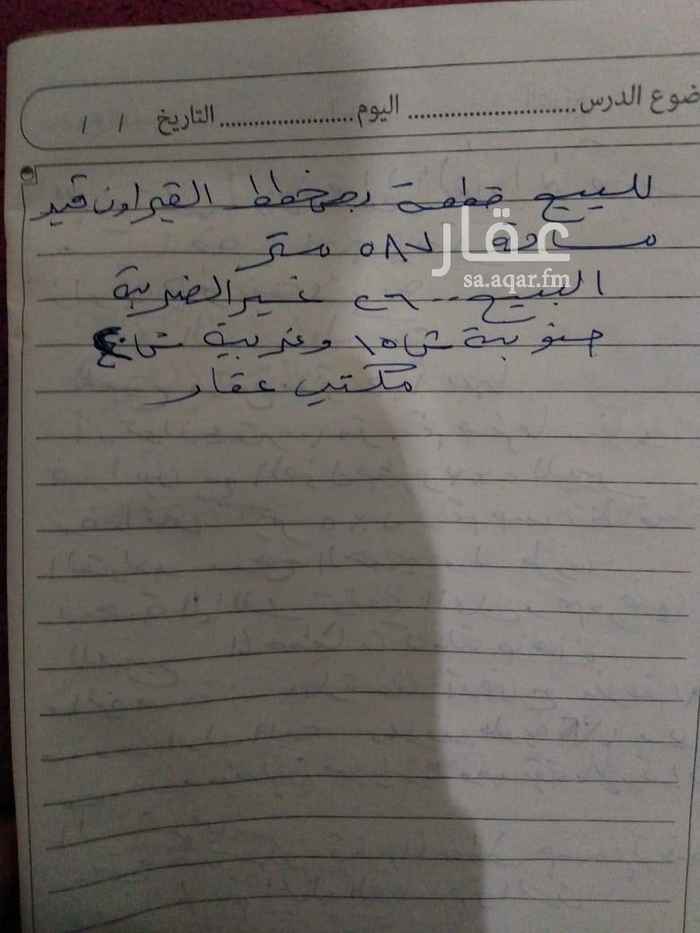 ضوع الدرس ........................ اليوم .................... التاريخ / /
للبيع قطعة بمخطط القيراون قيد
مساحة ٥٨٧ متر
البيع ٢٦٠٠ غير الضريبة
جنوبية ش١٥ وغربية
مكتب عقار
عقار
sa.aqar.fm